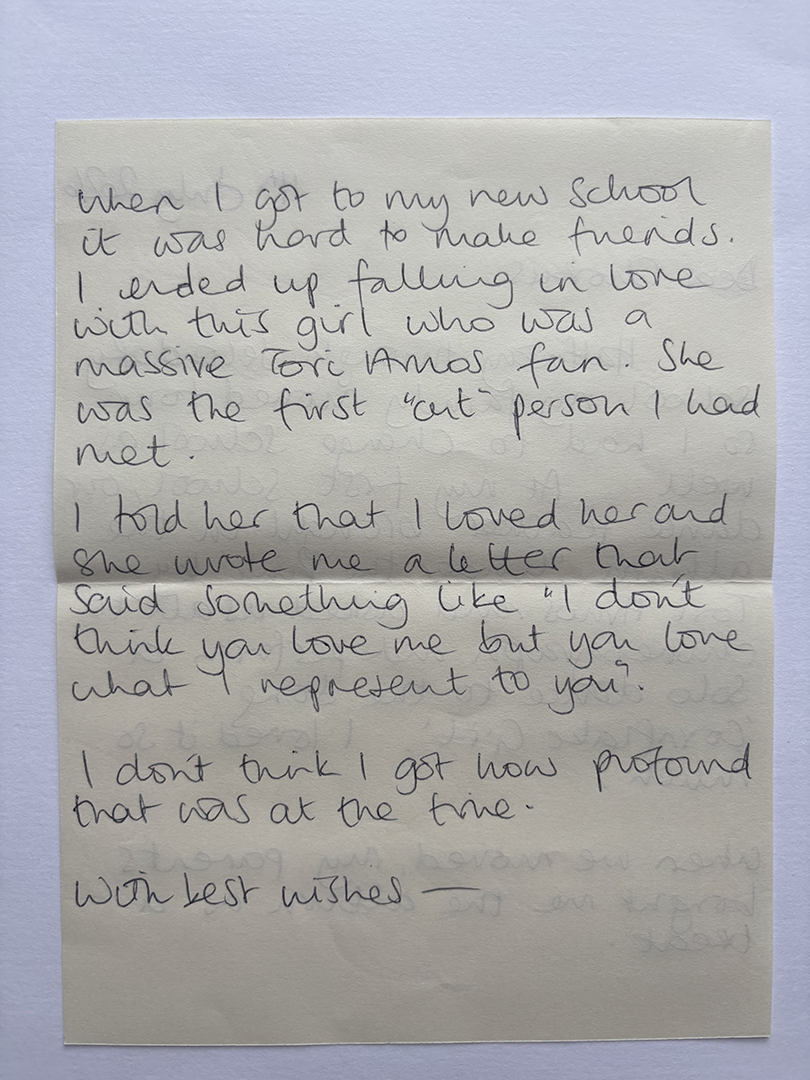 when I got to my new school
it was hard to make friends.
I ended up falling in love
with this girl who was a
massive Tori Amos fan. She
was the first "out" person I had
met.
I told her that I loved her and
she wrote me a letter that
said something like "I don't
think you love me but you love
what I represent to you".
I don't think I got how profound
that was at the time.
With best wishes —